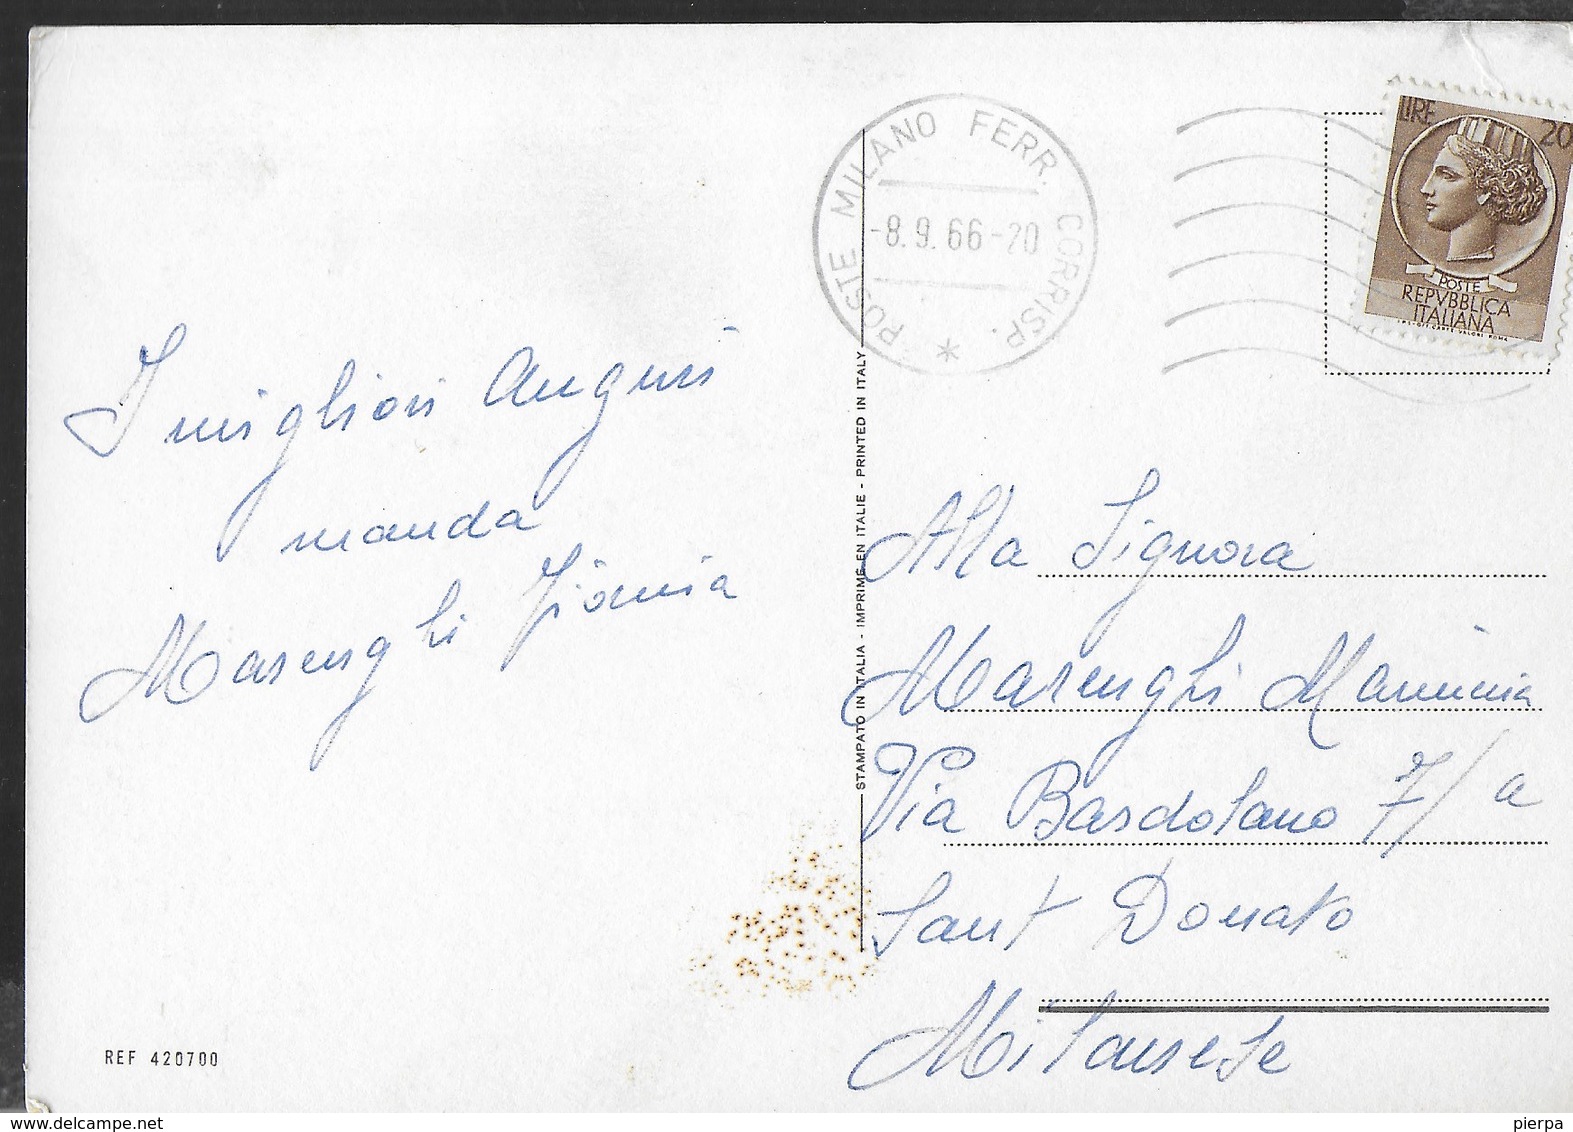 POSTE MILANO FERR. CORRISP. *
-8.9.66-20
LIRE 20
POSTE
REPVBBLICA
ITALIANA
I migliori auguri
manda
Marenghi
STAMPATO IN ITALIA - IMPRIMÉ EN ITALIE - PRINTED IN ITALY
Alla Signora
Marenghi
Via Bardolano 7/a
Sant Donato
Milanese
REF 420700
www.delcampe.net
pierpa